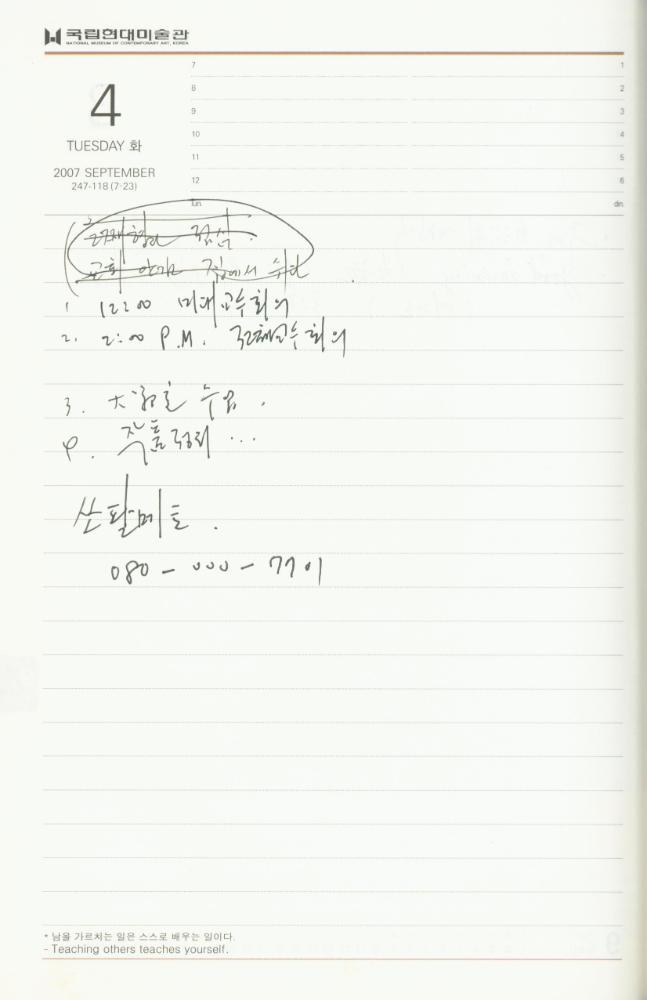 국립현대미술관
NATIONAL MUSEUM OF CONTEMPORARY ART, KOREA
4
TUESDAY 화
2007 SEPTEMBER
247-118 (7·23)
7 1
8 2
9 3
10 4
11 5
12 6
lun. din.
점심.
교회 안가고 집에서 쉬다
1 12:00 미대교수회의
2. 2:00 P.M. 전체교수회의
3. 大
4. 작품정리 ...
산필메토.
080-000-7701
* 남을 가르치는 일은 스스로 배우는 일이다.
- Teaching others teaches yourself.